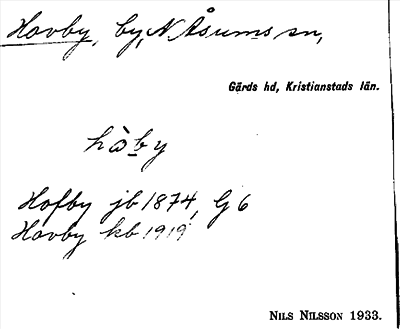 Hovby, by, N. Åsums sn,
Gärds hd, Kristianstads län.
hàby
Hofby jb 1874, G 6
Hovby kb 1919
NILS NILSSON 1933.